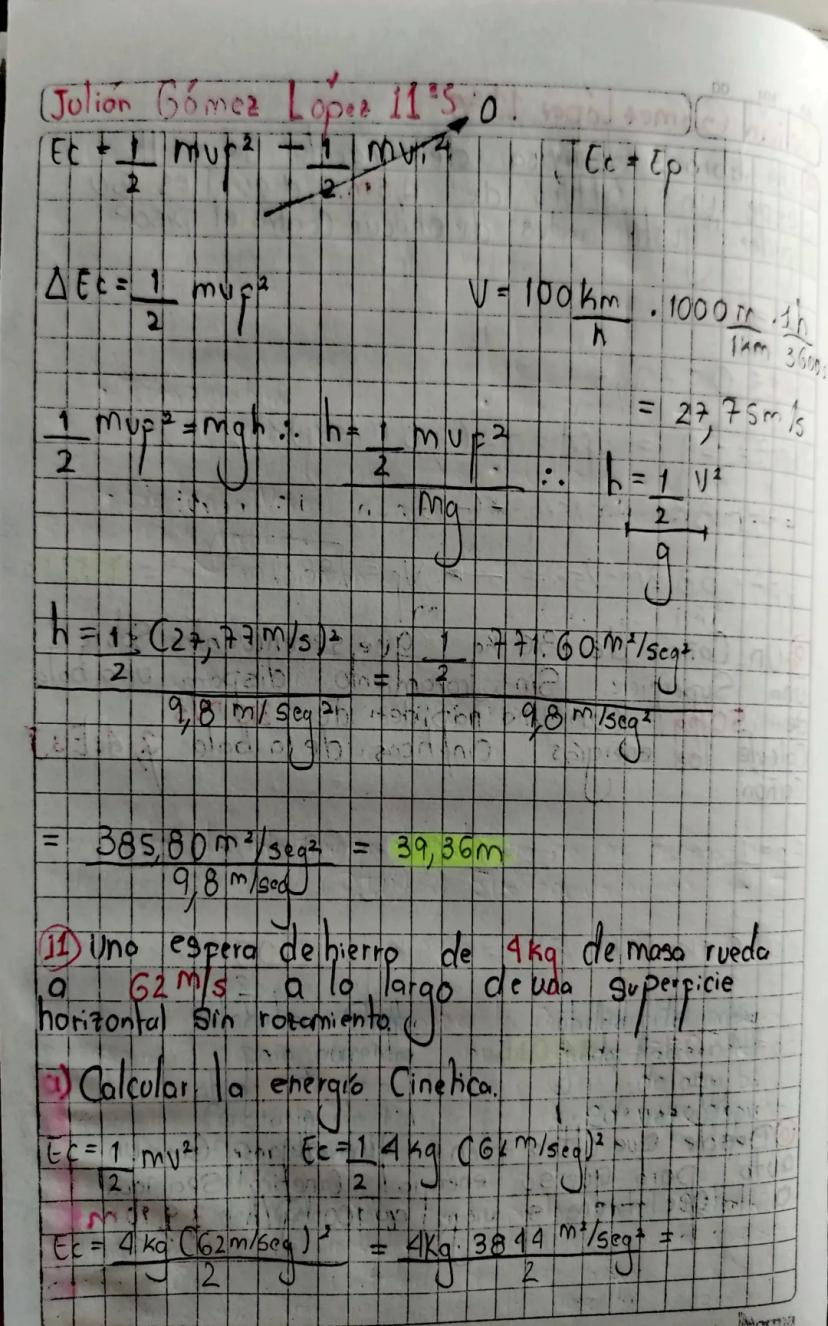 Julián Gómez López 11°5
Ec = 1/2 mvf² - 1/2 mvi² 0. Ec = Ep
ΔEc = 1/2 mvf² V = 100 km/h . 1000 m/1km . 1h/3600s
= 27,75m/s
1/2 mvf² = mgh ∴ h = 1/2 mvf² / mg ∴ h = 1/2 v² / g
h = 1/2 (27,77m/s)² / 9,8 m/seg² = 1/2 771.60 m²/seg² / 9,8 m/seg²
= 385,80 m²/seg² / 9,8 m/seg = 39,36m
11) Una espera de hierro de 4kg de masa rueda
a 62 m/s a lo largo de uda superficie
horizontal sin rozamiento.
a) Calcular la energía Cinetica.
Ec = 1/2 mv² Ec = 1/2 4kg (62m/seg)²
Ec = 4kg (62m/seg)² / 2 = 4kg . 3844 m²/seg² / 2 =